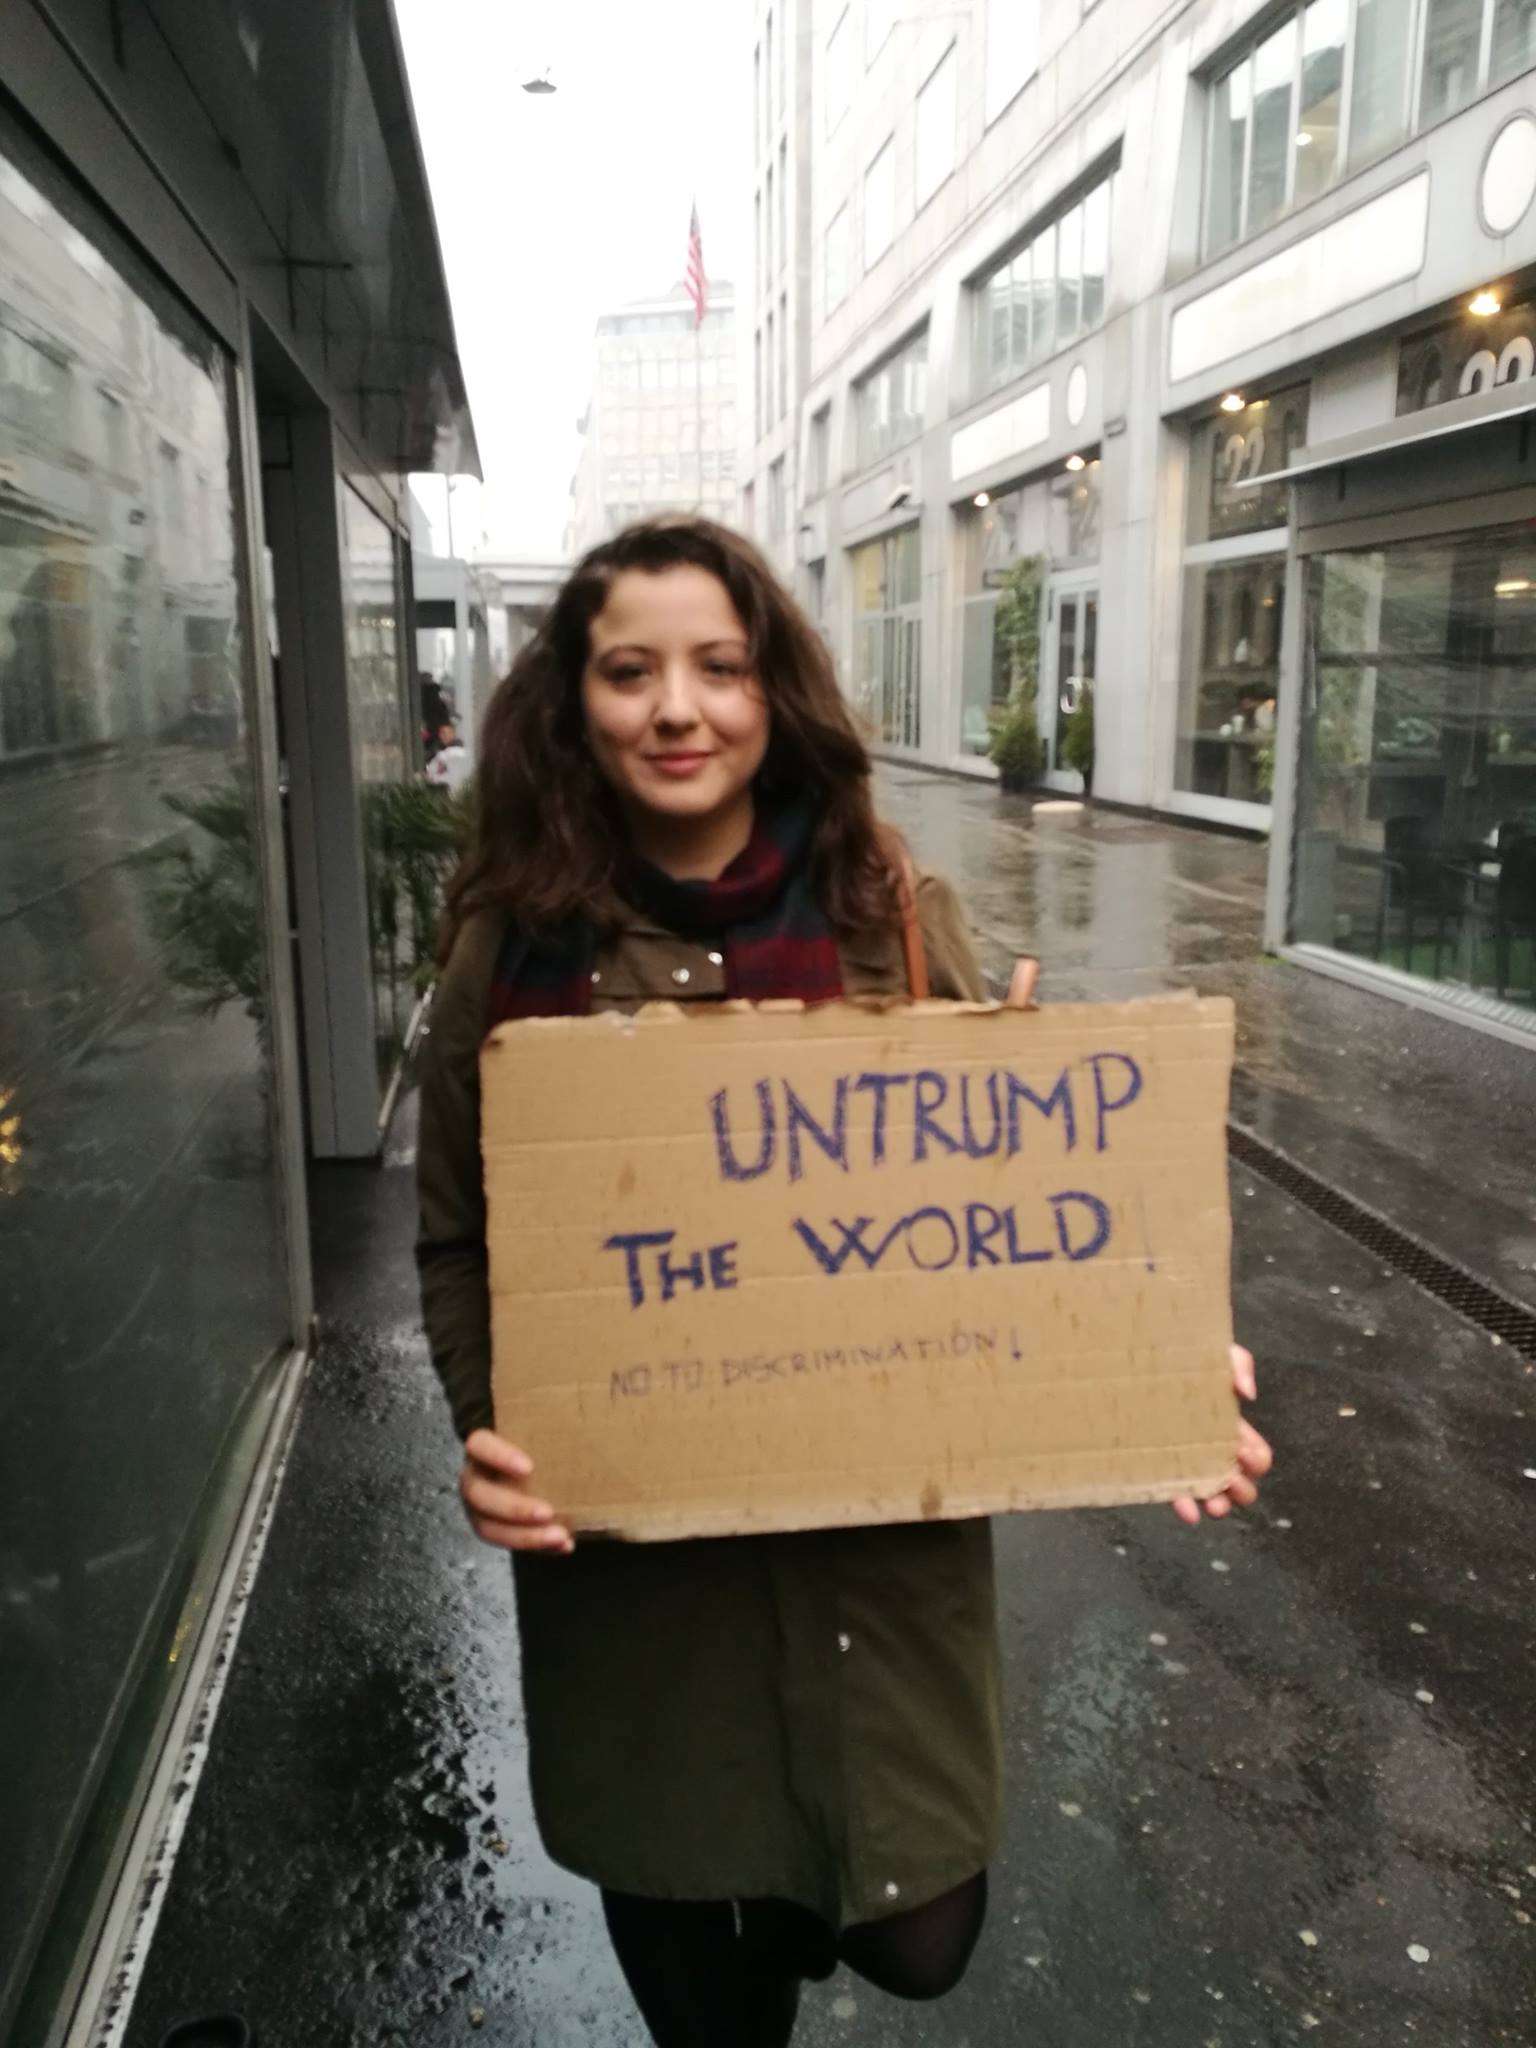 UNTRUMP
THE WORLD!
NO TO DISCRIMINATION!
22
22